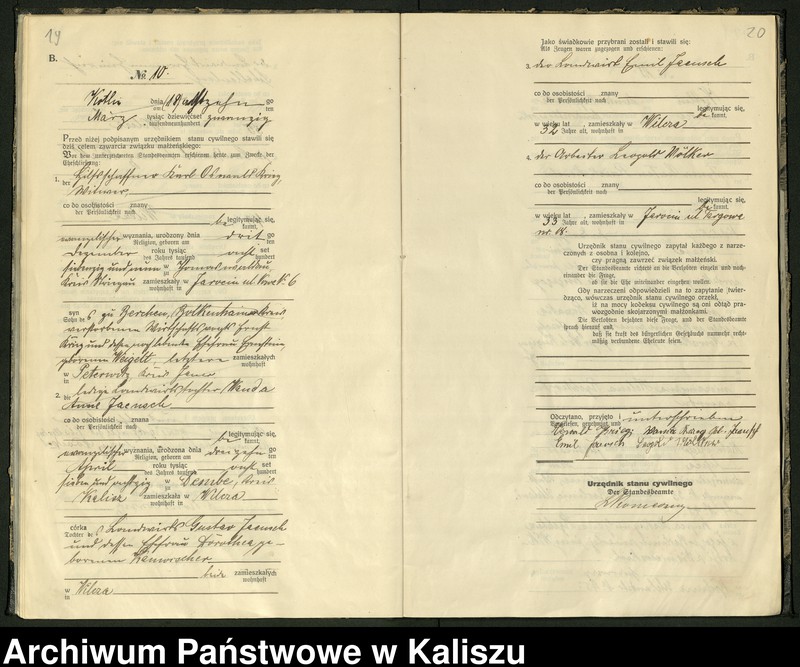 19
B.
№ 10.
Kotlin dnia (18) achtzehn go
am ten
März tysiąc dziewięćset zwanzig
tausendneunhundert
Przed niżej podpisanym urzędnikiem stanu cywilnego stawili się
dziś celem zawarcia związku małżeńskiego:
Vor dem unterzeichneten Standesbeamten erschienen heute zum Zwecke der
Eheschließung:
1. der Hilfsschaffner Karl Oswald
Witwer
co do osobistości znany
der Persönlichkeit nach
legitymując się,
kannt,
evangelischer wyznania, urodzony dnia dritten go
Religion, geboren am ten
Dezember roku tysiąc acht set
des Jahres tausend hundert
siebzig und neun w
zu
Kreis Striegau zamieszkały w Jarocin ul. 6
wohnhaft in
syn
Sohn des
verstorbenen Wirtschaftsvogts Ernst
und dessen Ehefrau Ernestine
geborenen Weigelt, letztere zamieszkałych
wohnhaft
w
in Peterwitz Kreis Jauer
2. die ledige Landwirtstochter Wanda
Anna Jaensch
co do osobistości znana
der Persönlichkeit nach
be legitymując się,
kannt,
evangelischer wyznania, urodzona dnia dreizehn go
Religion, geboren am ten
April roku tysiąc acht set
des Jahres tausend hundert
sieben und achtzig w Dembe, Kreis
zu
Kalisz zamieszkała w Wilcza
wohnhaft in
córka
Tochter des Landwirts Gustav Jaensch
und dessen Ehefrau Dorothea, ge-
borenen
beide zamieszkałych
wohnhaft
w
in Wilcza
20
Jako świadkowie przybrani zostali i stawili się:
Als Zeugen waren zugezogen und erschienen:
3. der Landwirt Emil Jaensch
co do osobistości znany
der Persönlichkeit nach
legitymując się,
be kannt,
w wieku lat 32, zamieszkały w Wilcza
Jahre alt, wohnhaft in
4. der Arbeiter Leopold Wölker
co do osobistości znany
der Persönlichkeit nach
legitymując się,
be kannt,
w wieku lat 33, zamieszkały w Jarocin ul. Targowa
Jahre alt, wohnhaft in
nr. 18.
Urzędnik stanu cywilnego zapytał każdego z narze-
czonych z osobna i kolejno,
czy pragną zawrzeć związek małżeński.
Der Standesbeamte richtete an die Verlobten einzeln und nach-
einander die Frage,
ob sie die Ehe miteinander eingehen wollen.
Gdy narzeczeni odpowiedzieli na to zapytanie twier-
dząco, wówczas urzędnik stanu cywilnego orzekł,
iż na mocy kodeksu cywilnego są oni odtąd pra-
wozgodnie skojarzonymi małżonkami.
Die Verlobten bejahten diese Frage, und der Standesbeamte
sprach hierauf aus,
daß sie kraft des bürgerlichen Gesetzbuchs nunmehr recht-
mäßig verbundene Eheleute seien.
Odczytano, przyjęto i unterschrieben
Vorgelesen, genehmigt und
Oswald Wanda geb. Jaensch
Emil Jaensch Leopold Wölker
Urzędnik stanu cywilnego
Der Standesbeamte
Archiwum Państwowe w Kaliszu